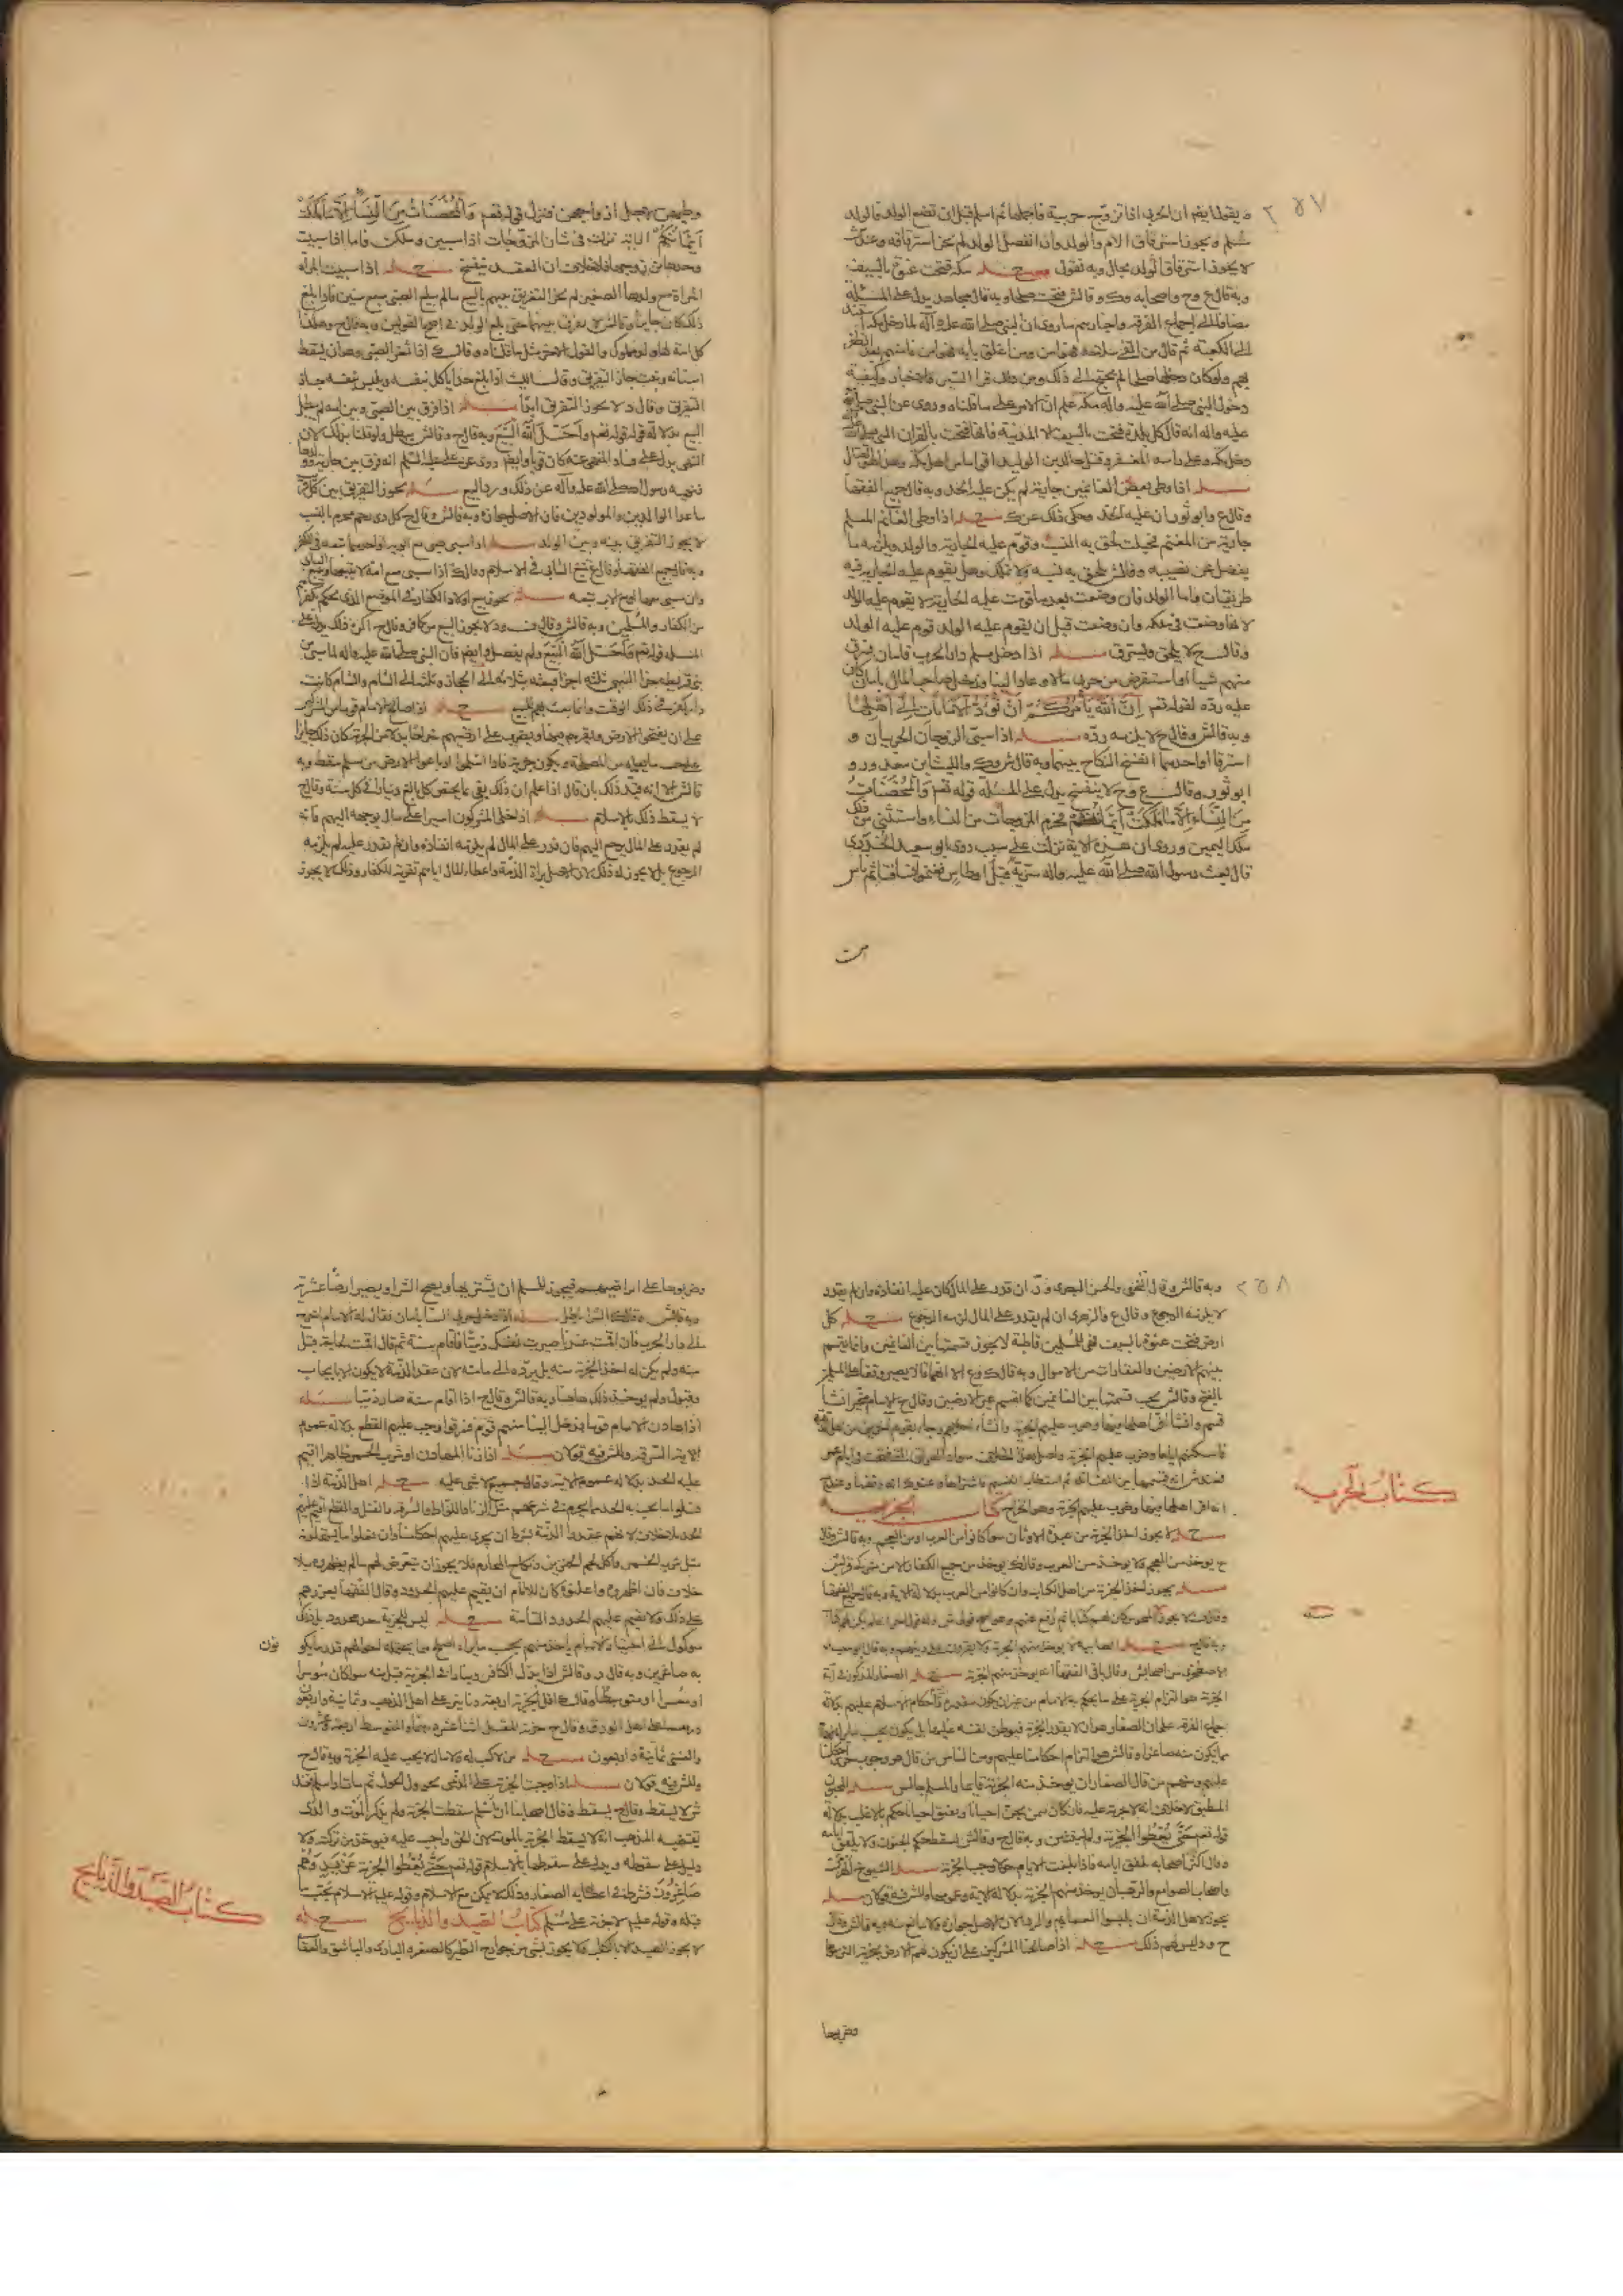 ٢٥٧
و يقول ايضا ان الحربى اذا تزوج حربية فاحبلها ثم اسلم قبل ان تضع الولد فالولد
مسلم و يجوز استرقاق الام والولد وان انفصل الولد لم يجز استرقاقه وعندنا
لا يجوز استرقاق الولد بحال وبه نقول مسئله مكة فتحت عنوة بالسيف
وبه قال ع وح واصحابه وك وقال ش فتحت صلحا وبه قال مجاهد يدل على المسئلة
مضافا الى اجماع الفرقة واخبارهم ما روى ان النبى صلى الله عليه وآله لما دخل مكة
الى الكعبة ثم قال من القى سلاحه فهو امن ومن اغلق بابه فهو امن فامنهم بعد الظفر
بهم ولو كان دخلها صلحا لم يحتج الى ذلك ومن قرا السير والاخبار وكيفية
دخول النبى صلى الله عليه واله مكة علم ان الامر على ما قلناه وروى عن النبى صلى الله
عليه واله انه قال كل بلدة فتحت بالسيف الا المدينة فانها فتحت بالقران
دخل مكة وعلى راسه المغفر وقتل خالد بن الوليد اقواما من اهل مكة
مسئله اذا وطى بعض الغانمين جارية لم يكن عليه الحد وبه قال جميع الفقها
وقال ع وابو ثور ان عليه الحد وحكى ذلك عن ك مسئله اذا وطى الغانم المسلم
جارية من المغنم فحبلت لحق به النسب وقوم عليه الجارية والولد ويلزمه ما
يفضل عن نصيبه وقال ش يلحق به نسبه ولا تملك وهل يقوم عليه الجارية فيه
طريقان واما الولد فان وضعت بعد ما قومت عليه الجارية لا يقوم عليه الولد
لانها وضعت فى ملكه وان وضعت قبل ان يقوم عليه الولد قوم عليه الولد
وقال ح لا يلحق ويسترق مسئله اذا دخل مسلم دار الحرب فامان فسرق
منهم شيا او استقرض من حربى مالا وعاد الينا ودخل صاحب المال بامان كان
عليه رده لقوله تعم إِنَّ اللَّهَ يَأْمُرُكُمْ أَنْ تُؤَدُّوا الْأَمَانَاتِ إِلَى أَهْلِهَا
وبه قال ش وقال ح لا يلزمه رده مسئله اذا سبى الزوجان الحربيان و
استرقا او احدهما انفسخ النكاح بينهما وبه قال ش وك والليث بن سعد ور و
ابو ثور وقال ع وح لا ينفسخ يدل على المسئلة قوله تعم وَالْمُحْصَنَاتُ
مِنَ النِّسَاءِ إِلَّا مَا مَلَكَتْ أَيْمَانُكُمْ فحرم المزوجات من النساء واستثنى من ذلك
ملك اليمين وروى ان هذه الاية نزلت على سبب روى ابو سعيد الخدرى
قال بعث رسول الله صلى الله عليه واله سرية قبل اوطاس فغنموا نساء فتاثم ناس
من
وطيهن لاجل ازواجهن فنزل قوله تعم وَالْمُحْصَنَاتُ مِنَ النِّسَاءِ إِلَّا مَا مَلَكَتْ
أَيْمَانُكُمْ الاية نزلت فى شان المزوجات اذا سبين وملكن فاما اذا سبيت
وحدها من زوجها فلا خلاف ان العقد ينفسخ مسئله اذا سبيت
المراة مع ولدها الصغير لم يجز التفريق بينهم بالبيع ما لم يبلغ الصبى سبع سنين فاذا بلغ
ذلك كان جايزا وقال ش لا يفرق بينهما حتى يبلغ الولد فى اصح القولين وبه قال ح وهكذا
كل امة لها ولد مملوك والقول الاخر مثل ما قلناه وقال ك اذا ثغر الصبى وهو ان يسقط
اسنانه وينبت جاز التفريق وقال الليث اذا بلغ حدا ياكل بنفسه ويلبس بنفسه جاز
التفريق وقال د لا يجوز التفريق ابدا مسئله اذا فرق بين الصبى وبين امه لم يبطل
البيع دلالة قوله تعم وَأَحَلَّ اللَّهُ الْبَيْعَ وبه قال ح وقال ش يبطل ولو قلنا بذلك لان
النهى يدل على فساد المنهى عنه كان قويا وايضا روى عن على عليه السلم انه فرق بين جارية وولدها
فنهيه رسول الله صلى الله عليه وآله عن ذلك ورد البيع مسئله يجوز التفريق بين كل
ما عدا الوالدين والمولودين فان الاصل جوازه وبه قال ش وقال ح كل ذى رحم محرم بالنسب
لا يجوز التفريق بينه وبين الولد مسئله اذا سبى صبى مع ابويه او احدهما تبعه فى الكفر
وبه قال جميع الفقها وقال ع تبع السابى فى الاسلام وقال ك اذا سبى مع امه لا يتبعها
وان سبى معها ومع الاب تبعه مسئله يجوز بيع اولاد الكفار فى الموضع الذى يحكم بكفرهم
من الكفار والمسلمين وبه قال ش وقال ف ود لا يجوز البيع من كافر وقال ح اكره ذلك يدل على
المسئله قوله تعم وَأَحَلَّ اللَّهُ الْبَيْعَ ولم يفصل وايضا فان النبى صلى الله عليه واله لما سبى
بنى قريظه جزا السبى ثلثه اجزا فبعث بثلاثة الى الحجاز وثلثا الى الشام والشام كانت
دار كفر فى ذلك الوقت وانما بعث بهم للبيع مسئله اذا صالح الامام قوما من المشركين
على ان يفتحوا الارض ويقرهم فيها ويضرب على ارضيهم خراجا بدلا من الجزية كان ذلك جايزا
على حسب ما يعلمه من المصلحة ويكون جزية فاذا اسلموا او باعوا الارض من مسلم سقط وبه
قال ش الا انه قيد ذلك بان قال اذا علم ان ذلك يفى بما يختص كل بالغ دينار فى كل سنة وقال ح
لا يسقط ذلك بالاسلام مسئله اذا خلى المشركون اسيرا على مال يوجهه اليهم فانه
لم يقدر على المال يرجع اليهم فان قدر على المال لم يلزمه انفاذه وان لم يقدر عليه لم يلزمه
الرجوع بل لا يجوز له ذلك لان الاصل براة الذمة واعطاء المال اياهم تقوية للكفار وذلك لا يجوز
٢٥٨
وبه قال ش وقال النخعى والحسن البصرى ان قدر على المال كان عليه انفاذه وان لم يقدر
لا يلزمه الرجوع وقال ع والزهرى ان لم يقدر على المال لزمه الرجوع مسئله كل
ارض فتحت عنوة بالسيف فهى للمسلمين قاطبة لا يجوز قسمتها بين الغانمين وانما يقسم
بينهم الارضين والعقارات من الاموال وبه قال ك وع الا انهما قالا يصير وقفا على المسلمين
بالفتح وقال ش يجب قسمتها بين الغانمين كما تقسم غير الارضين وقال ح الامام مخير ان شا
قسم وان شا اقر اهلها فيها وضرب عليهم الجزية وان شاء اجلاهم وجاء بقوم آخرين
فاسكنهم اياها وضرب عليهم الجزية واصل هذا الخلاف سواد العراق التى فتحت فى ايام عمر
فعند ش انه قسمها بين المقاتلة ثم استطاب انفسهم فاشتراها وعند ك انه وقفها وعند ح
انه اقر اهلها فيها وضرب عليهم الجزية وهو الخراج كتاب الجزيه
مسئله لا يجوز اخذ الجزية من عبدة الاوثان سوا كانوا من العرب او من العجم وبه قال ش وقال
ح يوخذ من العجم ولا يوخذ من العرب وقال ك يوخذ من جميع الكفار الا من مشركى قريش
مسئله يجوز اخذ الجزية من اهل الكتاب وان كانوا من العرب بدلالة الاية وبه قال جميع الفقها
وبه قال ح مسئله الصابية لا يوخذ منهم الجزية ولا يقرون على دينهم وبه قال ابو سعيد
الاصطخرى من اصحاب ش وقال باقى الفقها انه يوخذ منهم الجزية مسئله الصغار المذكور فى آية
الجزية هو التزام الجزية على ما يحكم به الامام من غير ان يكون مقدرة والتزام احكام الاسلام عليهم بدلالة
اجماع الفرقة على ان الصغار هو ان لا يقدر الجزية فيوطن نفسه عليها بل يكون بحسب ما يراه
مما يكون معه صاغرا وقال ش هو التزام احكامنا عليهم ومن الناس من قال هو وجوب جرى احكامنا
عليهم ومنهم من قال الصغار ان يوخذ منه الجزية قايما والمسلم جالس مسئله المجنون
المطبق لا خلاف انه لا جزية عليه فان كان ممن يجن احيانا ويفيق احيانا حكم بالاغلب بدلالة
قوله تعم حَتَّى يُعْطُوا الْجِزْيَةَ ولم يستثن وبه قال ح وقال ش يسقط حكم الجنون ويلفق ايامه
وقال اكثر اصحابه تلفق ايامه فاذا بلغت الايام حولا وجب الجزية مسئله الشيوخ الهرمى
واصحاب الصوامع والرهبان يوخذ منهم الجزية بدلالة الاية وعمومها وللش فيه قولان مسئله
يجوز لاهل الذمة ان يلبسوا العمايم والردا لان الاصل جوازه ولا مانع منه وبه قال ش وقال
ح ود ليس لهم ذلك مسئله اذا صالحنا المشركين على ان يكون لهم الارض بجزية التزموها
وضربوها
كتاب الحرب
وضربوها على اراضيهم فيجوز للمسلم ان يشتريها ويصح الشرا ويصير ارضا عشرية
وبه قال ش وقال ك الشرا باطل مسئله اذا دخل حربى الينا بامان فقال له الامام اخرج
الى دار الحرب فان اقمت عندنا صيرت نفسك ذميا فاقام سنة ثم قال اقمت لحاجة قبل
منه ولم يكن له اخذ الجزية منه بل يرده الى مامنه لان عقد الذمة لا يكون الا بايجاب
وقبول ولم يوجد ذلك هاهنا وبه قال ش وقال ح اذا اقام سنة صار ذميا مسئله
اذا هادن الامام قوما فدخل الينا منهم قوم فسرقوا وجب عليهم القطع بدلالة عموم
الاية السرقة وللش فيه قولان مسئله اذا زنا المهادن او شرب الخمر ظاهرا اقيم
عليه الحد بدلالة عموم الاية وقال جميعهم لا شى عليه مسئله اهل الذمة اذا
فعلوا ما يجب به الحد مما يحرم فى شرعهم مثل الزنا واللواط والسرقة والقتل والقطع اقيم عليهم
الحد بلا خلاف لانهم عقدوا الذمة بشرط ان يجرى عليهم احكامنا وان فعلوا ما يستحلونه
مثل شرب الخمر واكل لحم الخنزير ونكاح المحارم فلا يجوز ان يتعرض لهم ما لم يظهروه بلا
خلاف فان اظهروه واعلنوه كان للامام ان يقيم عليهم الحدود وقال الفقها يعزرهم
على ذلك ولا يقيم عليهم الحدود التامة مسئله ليس للجزية حد محدود بل ذلك
موكول الى اجتهاد الامام ياخذ منهم بحسب ما يراه اصلح مما يحتمله احوالهم قدر ما يكونون
به صاغرين وبه قال ر وقال ش اذا بذل الكافر دينارا فى الجزية قبل منه سوا كان موسرا
او معسرا او متوسطا وقال ك اقل الجزية اربعة دنانير على اهل الذهب وثمانية واربعون
درهما على اهل الورق وقال ح جزية المقل اثنا عشر درهما والمتوسط اربعة وعشرون
والغنى ثمانية واربعون مسئله من لا كسب له ولا مال لا يجب عليه الجزية وبه قال ح
وللش فيه قولان مسئله اذا وجبت الجزية على الذمى بحوول الحول ثم مات او اسلم فعند
ش لا يسقط وقال ح يسقط وقال اصحابنا ان اسلم سقطت الجزية ولم يذكروا الموت والذى
يقتضيه المذهب انه لا يسقط الجزية بالموت لان الحق واجب عليه فيوخذ من تركته ولا
دليل على سقوطه ويدل على سقوطها بالاسلام قوله تعم حَتَّى يُعْطُوا الْجِزْيَةَ عَنْ يَدٍ وَهُمْ
صَاغِرُونَ فشرط فى اعطايه الصغار وذلك لا يمكن مع الاسلام وقوله عليه السلم الاسلام يجب ما
قبله وقوله عليه السلم لا جزية على مسلم كتاب الصيد والذبايح مسئله
لا يجوز الصيد الا بالكلب ولا يجوز بشى من جوارح الطير كالصقر والبازى والباشق والعقاب
كتاب الصيد والذبايح